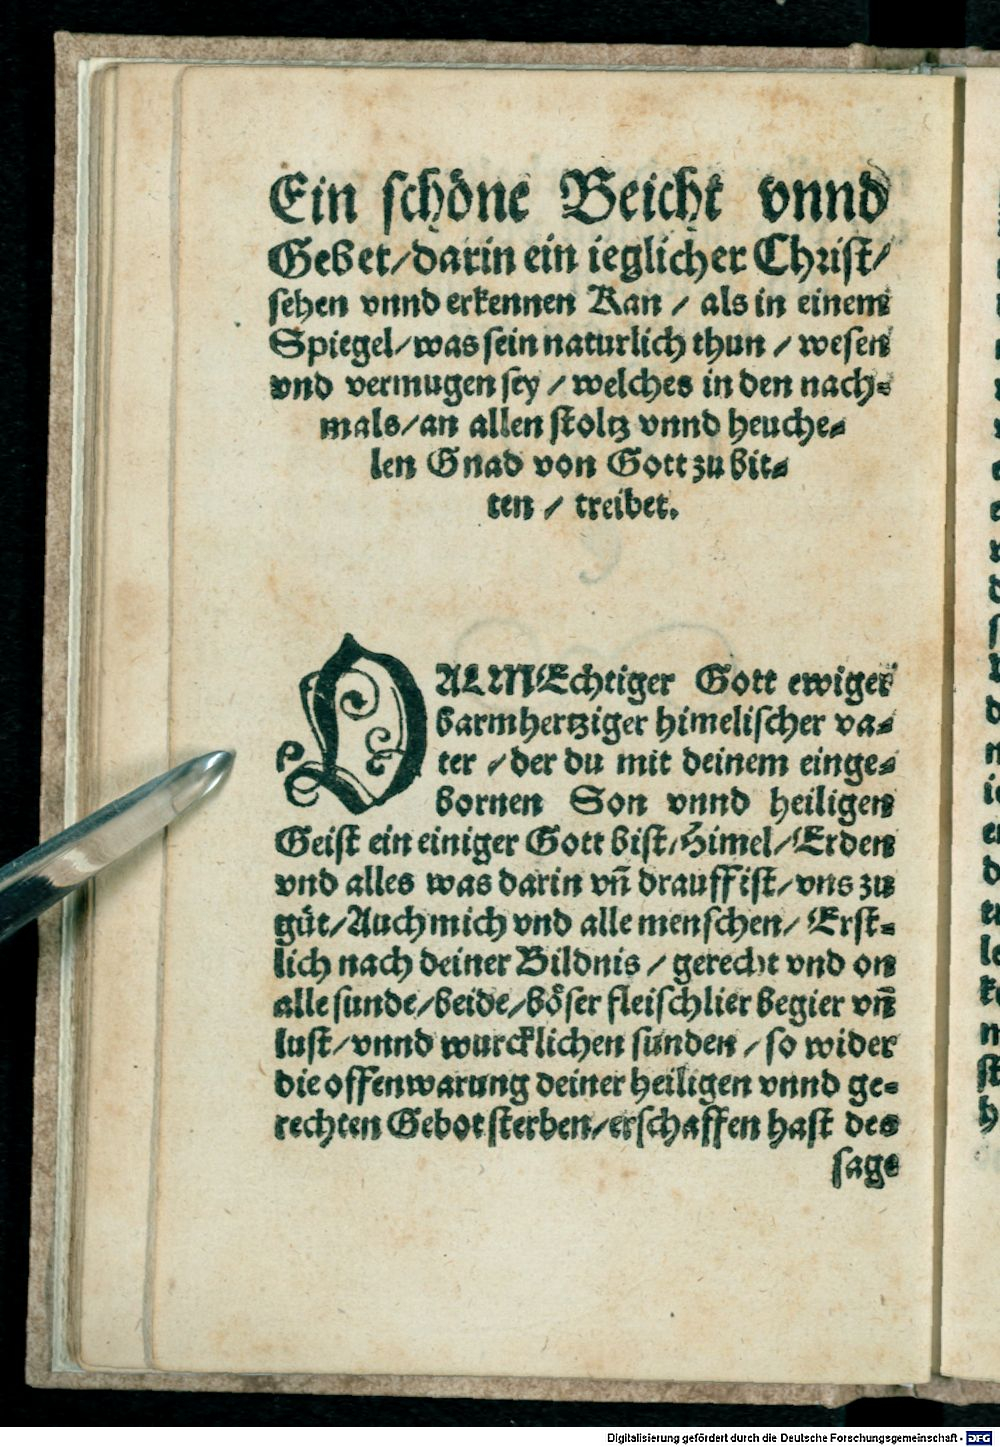 Ein schöne Beicht vnnd
Gebet/darin ein ieglicher Christ/
sehen vnnd erkennen Kan / als in einem
Spiegel/was sein naturlich thun / wesen
vnd vermugen sey / welches in den nach⸗
mals/an allen stoltz vnnd heuche⸗
len Gnad von Gott zu bit⸗
ten / treibet.
O ALMEchtiger Gott ewiger
barmhertziger himelischer va⸗
ter / der du mit deinem einge⸗
bornen Son vnnd heiligen
Geist ein einiger Gott bist/Himel/Erden
vnd alles was darin vñ drauff ist/vns zu
gůt/Auch mich vnd alle menschen/ Erst⸗
lich nach deiner Bildnis / gerecht vnd on
alle sunde/beide/böser fleischlier begier vñ
lust/vnnd wurcklichen sunden / so wider
die offenwarung deiner heiligen vnnd ge⸗
rechten Gebot sterben/erschaffen hast des
sage
Digitalisierung gefördert durch die Deutsche Forschungsgemeinschaft - DFG